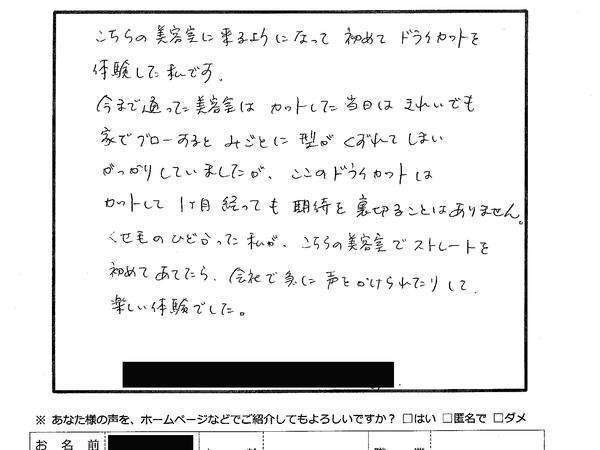 こちらの美容室に来るようになって 初めて ドライカットを
体験した私です。
今まで通ってた美容室は カットした当日は きれいでも
家でブローすると みごとに 型が くずれてしまい
がっかりしていましたが、ここのドライカットは
カットして 1ヶ月 経っても 期待を 裏切ることはありません。
くせ毛のひどかった私が、こちらの美容室でストレートを
初めてあてたら、会社で急に 声をかけられたりして、
楽しい体験でした。
※ あなた様の声を、ホームページなどでご紹介してもよろしいですか？ □はい □匿名で □ダメ
お 名 前